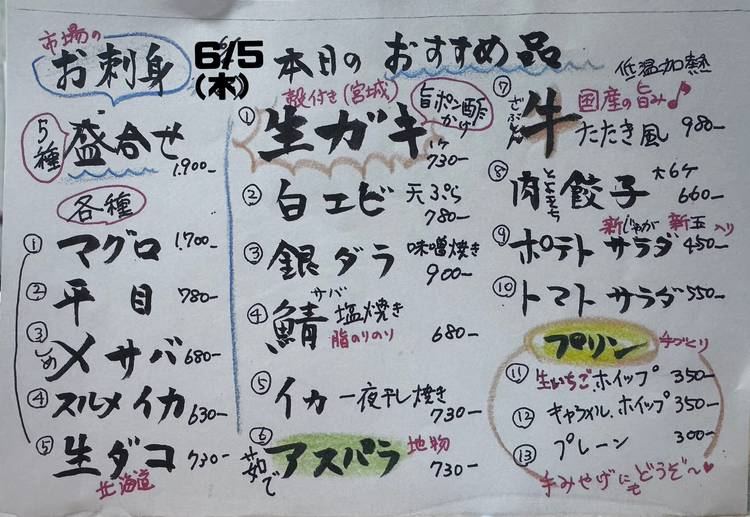 市場の
お刺身
6/5
(木)
本日の おすすめ品
5種 盛合せ
1.900-
各種
① マグロ 1.700-
② 平目 780-
③ しめ 〆サバ 680-
④ スルメイカ 630-
⑤ 生ダコ 730-
北海道
殻付き(宮城)
旨ポン酢かけ
① 生ガキ
1ケ
730-
② 白エビ 天ぷら
780-
③ 銀ダラ 味噌焼き
900-
サバ
④ 鯖 塩焼き
脂のりのり 680-
⑤ イカ 一夜干し焼き
730-
⑥ 茹で アスパラ 地物
730-
低温加熱
⑦ ざぶとん 牛 国産の旨み♪
たたき風 980-
⑧ 肉 餃子 大6ケ
660-
新じゃが 新玉入り
⑨ ポテトサラダ 450-
⑩ トマトサラダ 550-
プリン 手づくり
⑪ 生いちご.ホイップ 350-
⑫ キャラメル.ホイップ 350-
⑬ プレーン 300-
手みやげにもどうぞ〜♥